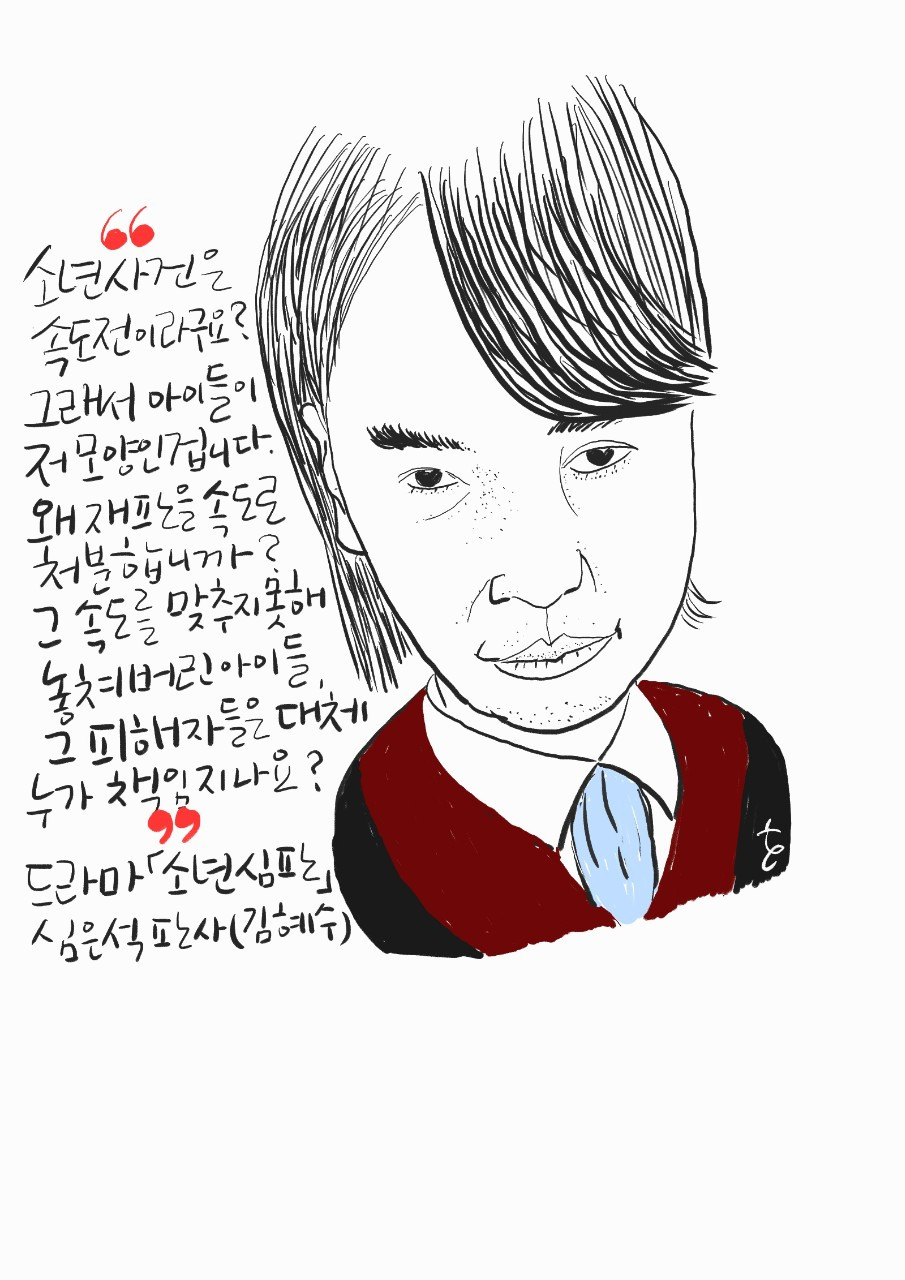 “
소년사건은
속도전이라구요?
그래서 아이들이
저 모양인겁니다.
왜 재판을 속도로
처분합니까?
그 속도를 맞추지못해
놓쳐버린아이들,
그 피해자들은 대체
누가 책임지나요?
”
드라마「소년심판」
심은석 판사(김혜수)